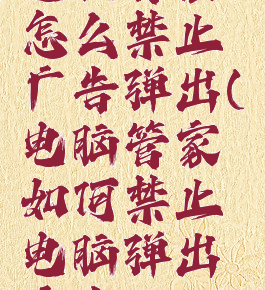 怎么禁止
广告弹出(
电脑管家
如何禁止
电脑弹出